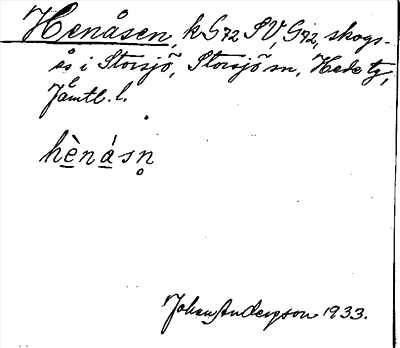 Henåsen, k G72 SV, G72, skogs-
ås i Storsjö, Storsjö sn, Hede tg,
Jämtl. l.
hènásn̥
Johan Anderson 1933.